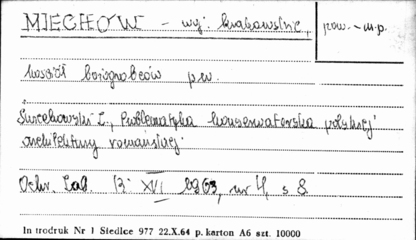 MIECHÓW - woj. krakowskie, pow. - m.p.
kościół bożogrobców p.w.
Świechowski Z., Problematyka konserwatorska polskiej
architektury romańskiej
Ochr. Zab. R. XVI 1963, nr 4, s 8
Introdruk Nr 1 Siedlce 977 22.X.64 p. karton A6 szt. 10000